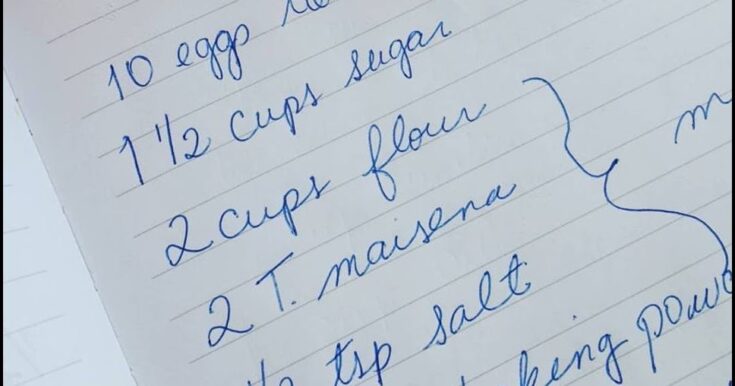 10 eggs
1 1/2 cups sugar
2 cups flour
2 T. maisena
tsp salt